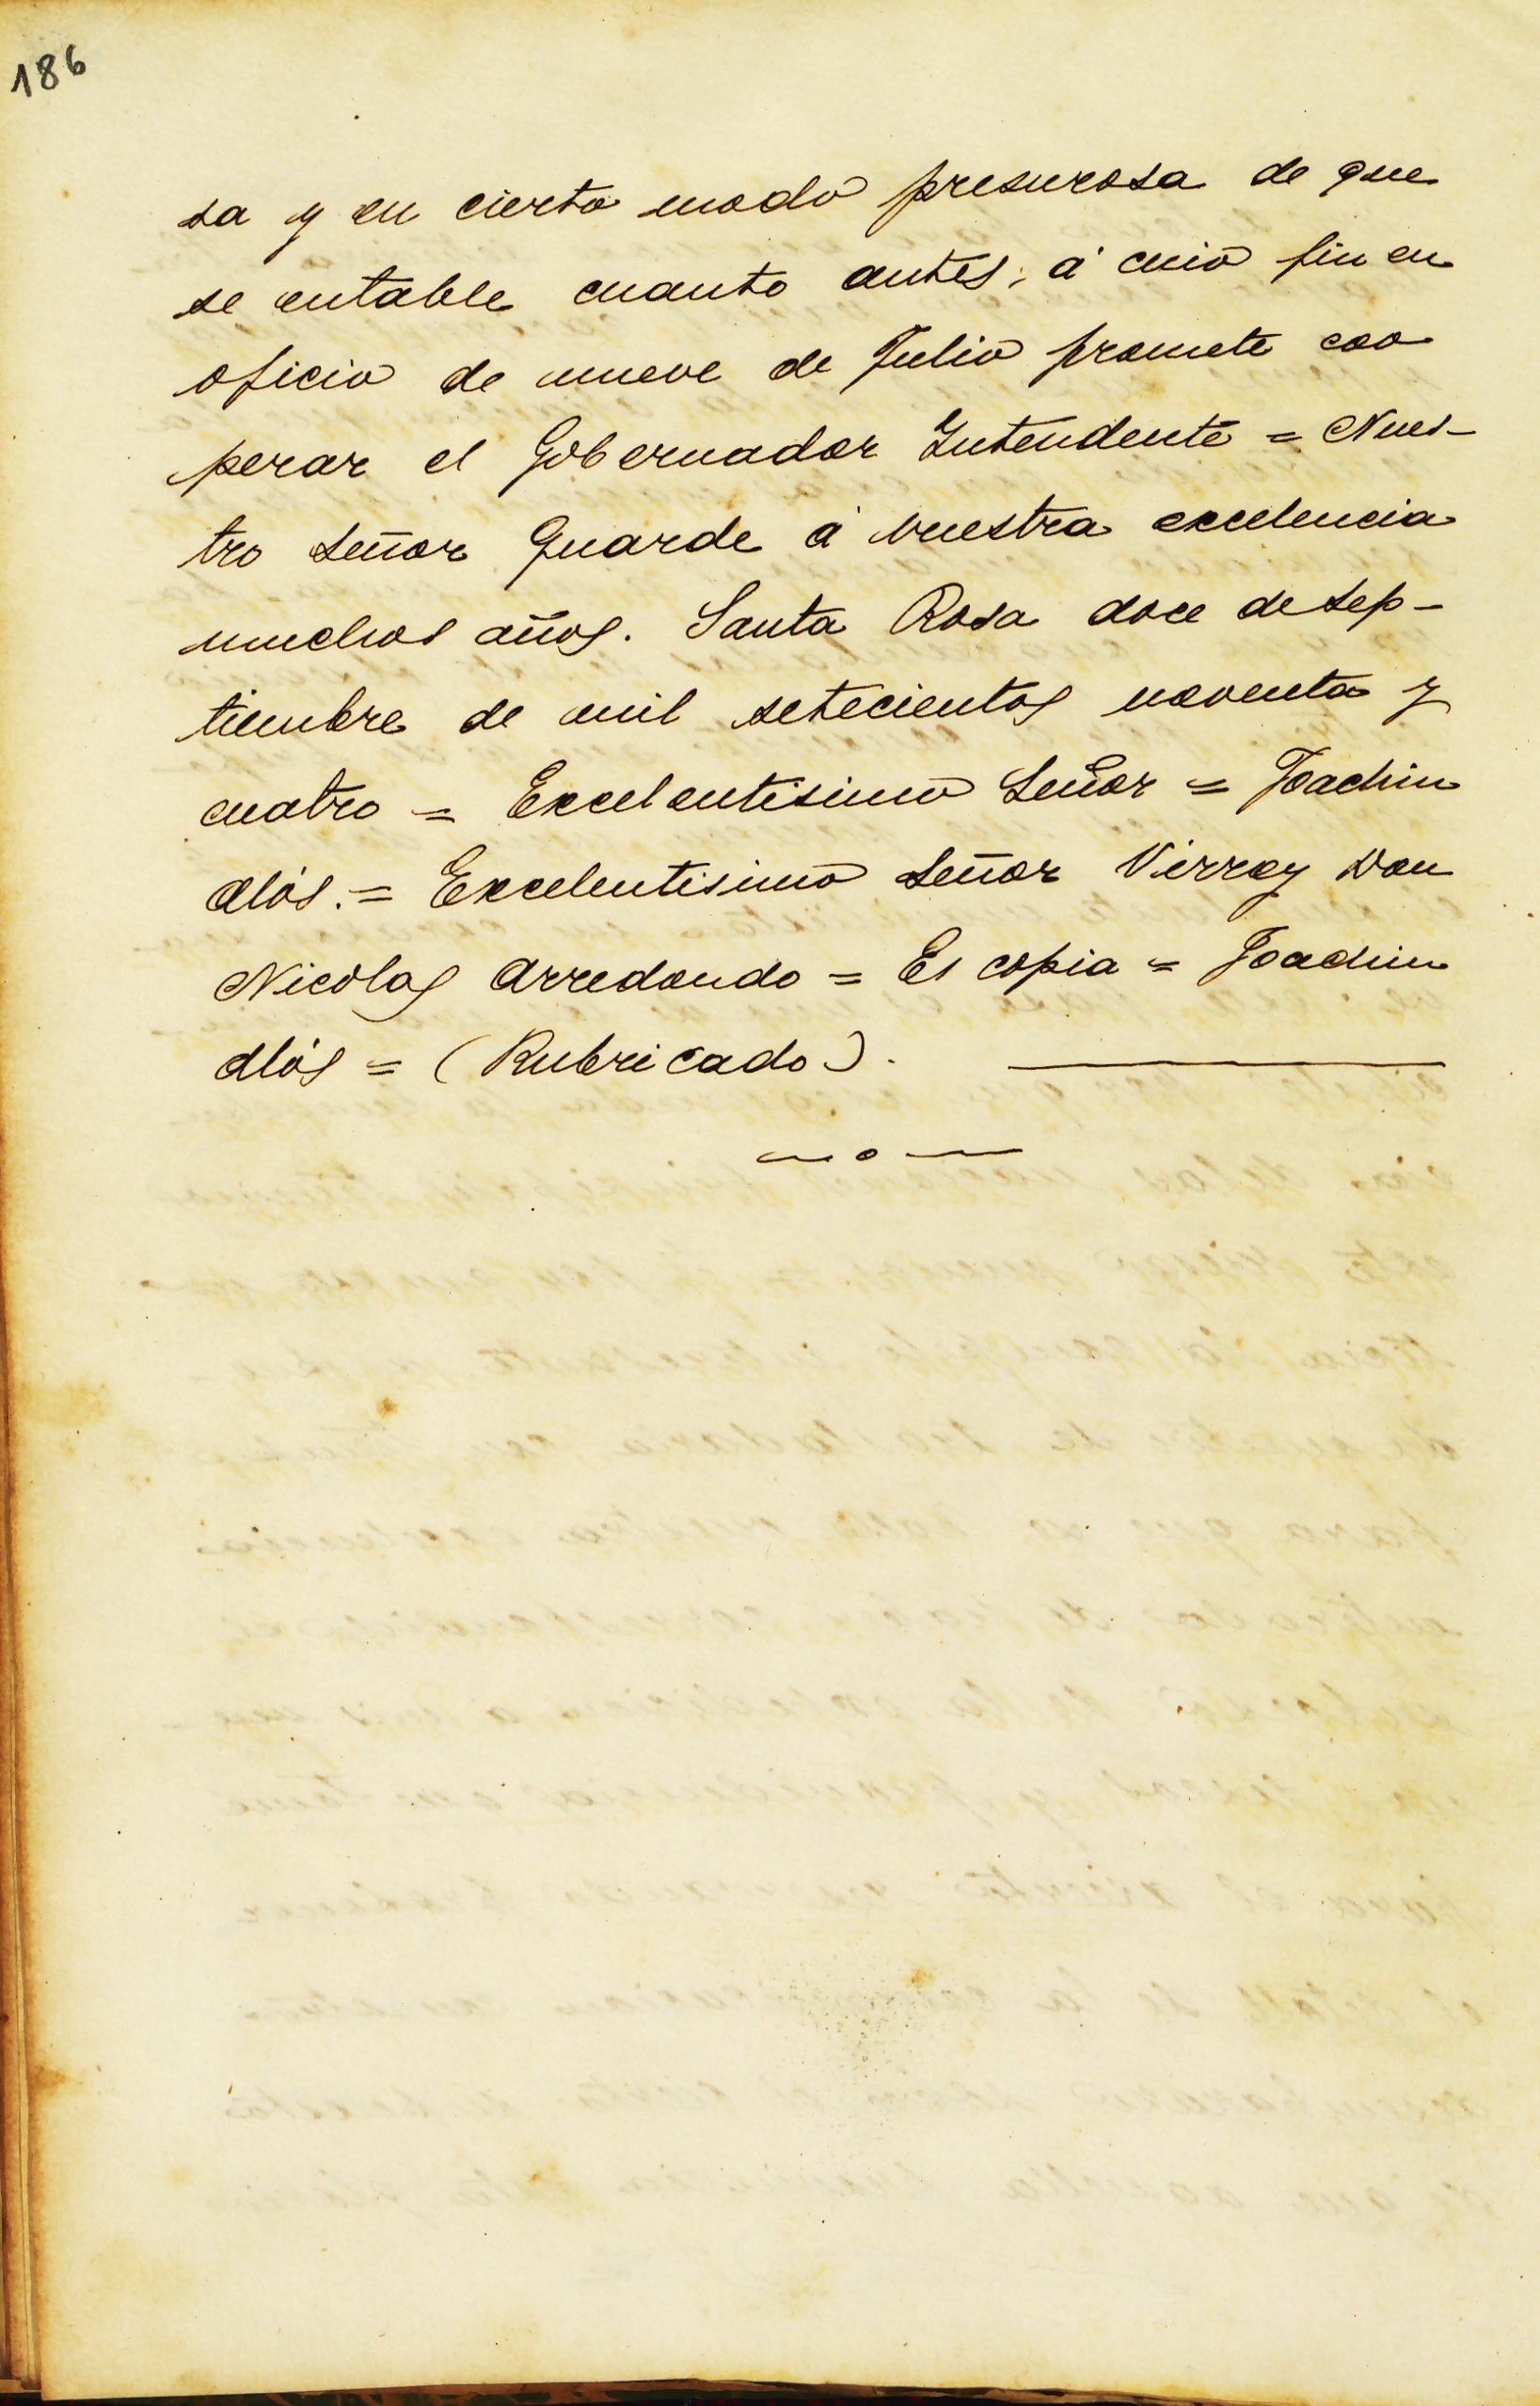 186
sa y en cierto modo presurosa de que
se entable cuanto antes, á cuio fin en
oficio de nueve de Julio promete coo
perar el Gobernador Intendente = Nues-
tro Señor Guarde á vuestra excelencia
muchos años. Santa Rosa doce de Sep-
tiembre de mil setecientos noventa y
cuatro = Excelentisimo Señor = Joachin
Alós. = Excelentisimo Señor Virrey Don
Nicolas Arredondo = Es copia = Joachin
Alós = (Rubricado).